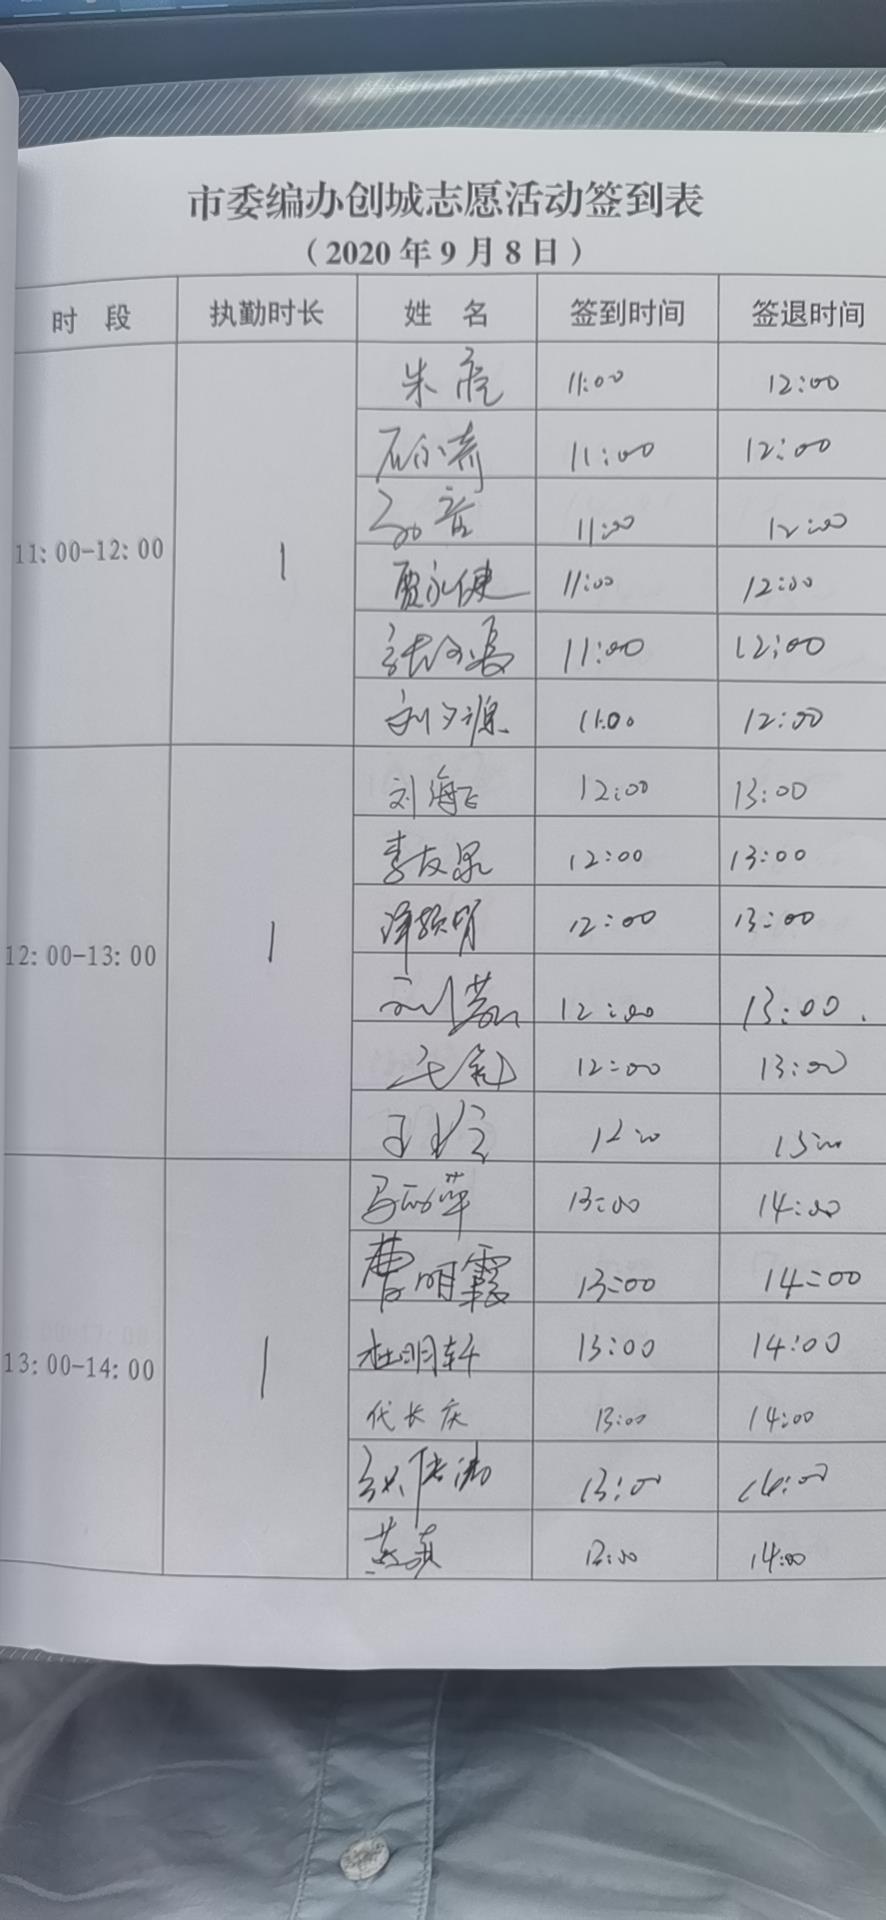 市委编办创城志愿活动签到表
（2020年9月8日）
时 段 执勤时长 姓 名 签到时间 签退时间
11:00-12:00 1
朱亮 11:00 12:00
11:00 12:00
11:00 12:00
贾永健 11:00 12:00
11:00 12:00
刘夕源 11:00 12:00
12:00-13:00 1
刘海飞 12:00 13:00
李友泉 12:00 13:00
12:00 13:00
12:00 13:00.
12:00 13:00
12:00 13:00
13:00-14:00 1
马丽萍 13:00 14:00
曹明霞 13:00 14:00
杜明轩 13:00 14:00
代长庆 13:00 14:00
13:00 14:00
14:00